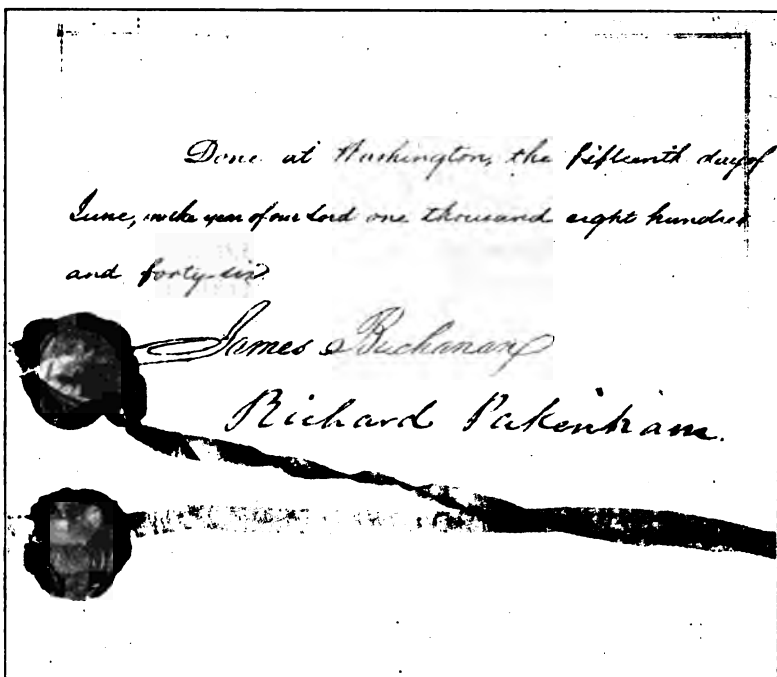 Done at Washington, the fifteenth day of
June, in the year of our Lord one thousand eight hundred
and forty-six.
James Buchanan
Richard Pakenham.